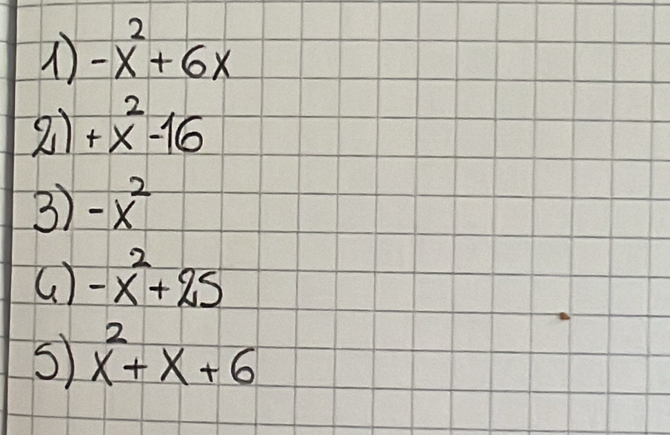 1) -x² + 6x
2) + x² - 16
3) -x²
4) -x² + 25
5) x² + x + 6